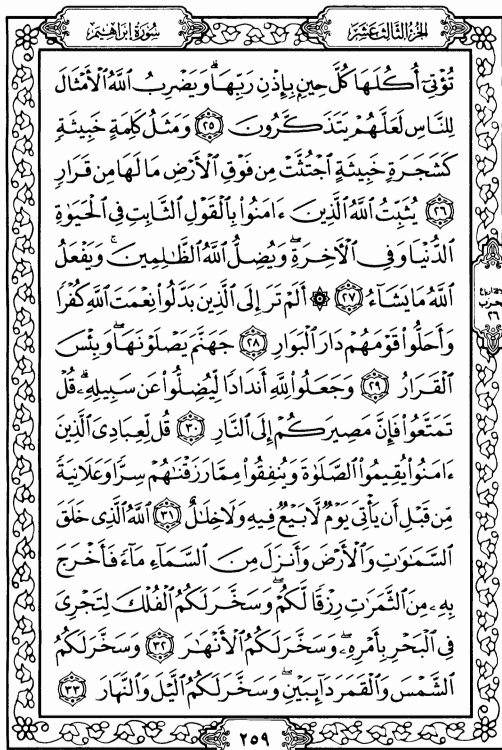 سُورَةُ إِبْرَاهِيمَ
الجُزْءُ الثَّالِثَ عَشَرَ
تُؤْتِىٓ أُكُلَهَا كُلَّ حِينٍۭ بِإِذْنِ رَبِّهَاۗ وَيَضْرِبُ ٱللَّهُ ٱلْأَمْثَالَ
لِلنَّاسِ لَعَلَّهُمْ يَتَذَكَّرُونَ ٢٥ وَمَثَلُ كَلِمَةٍ خَبِيثَةٍ
كَشَجَرَةٍ خَبِيثَةٍ ٱجْتُثَّتْ مِن فَوْقِ ٱلْأَرْضِ مَا لَهَا مِن قَرَارٍ
٢٦ يُثَبِّتُ ٱللَّهُ ٱلَّذِينَ ءَامَنُوا۟ بِٱلْقَوْلِ ٱلثَّابِتِ فِى ٱلْحَيَوٰةِ
ٱلدُّنْيَا وَفِى ٱلْـَٔاخِرَةِۖ وَيُضِلُّ ٱللَّهُ ٱلظَّـٰلِمِينَۚ وَيَفْعَلُ
ٱللَّهُ مَا يَشَآءُ ٢٧ ۞ أَلَمْ تَرَ إِلَى ٱلَّذِينَ بَدَّلُوا۟ نِعْمَتَ ٱللَّهِ كُفْرًا
وَأَحَلُّوا۟ قَوْمَهُمْ دَارَ ٱلْبَوَارِ ٢٨ جَهَنَّمَ يَصْلَوْنَهَاۖ وَبِئْسَ
ٱلْقَرَارُ ٢٩ وَجَعَلُوا۟ لِلَّهِ أَندَادًا لِّيُضِلُّوا۟ عَن سَبِيلِهِۦۗ قُلْ
تَمَتَّعُوا۟ فَإِنَّ مَصِيرَكُمْ إِلَى ٱلنَّارِ ٣٠ قُل لِّعِبَادِىَ ٱلَّذِينَ
ءَامَنُوا۟ يُقِيمُوا۟ ٱلصَّلَوٰةَ وَيُنفِقُوا۟ مِمَّا رَزَقْنَـٰهُمْ سِرًّا وَعَلَانِيَةً
مِّن قَبْلِ أَن يَأْتِىَ يَوْمٌ لَّا بَيْعٌ فِيهِ وَلَا خِلَـٰلٌ ٣١ ٱللَّهُ ٱلَّذِى خَلَقَ
ٱلسَّمَـٰوَٰتِ وَٱلْأَرْضَ وَأَنزَلَ مِنَ ٱلسَّمَآءِ مَآءً فَأَخْرَجَ
بِهِۦ مِنَ ٱلثَّمَرَٰتِ رِزْقًا لَّكُمْۖ وَسَخَّرَ لَكُمُ ٱلْفُلْكَ لِتَجْرِىَ
فِى ٱلْبَحْرِ بِأَمْرِهِۦۖ وَسَخَّرَ لَكُمُ ٱلْأَنْهَـٰرَ ٣٢ وَسَخَّرَ لَكُمُ
ٱلشَّمْسَ وَٱلْقَمَرَ دَآئِبَيْنِۖ وَسَخَّرَ لَكُمُ ٱلَّيْلَ وَٱلنَّهَارَ ٣٣
الحزب
٢٦
٢٥٩